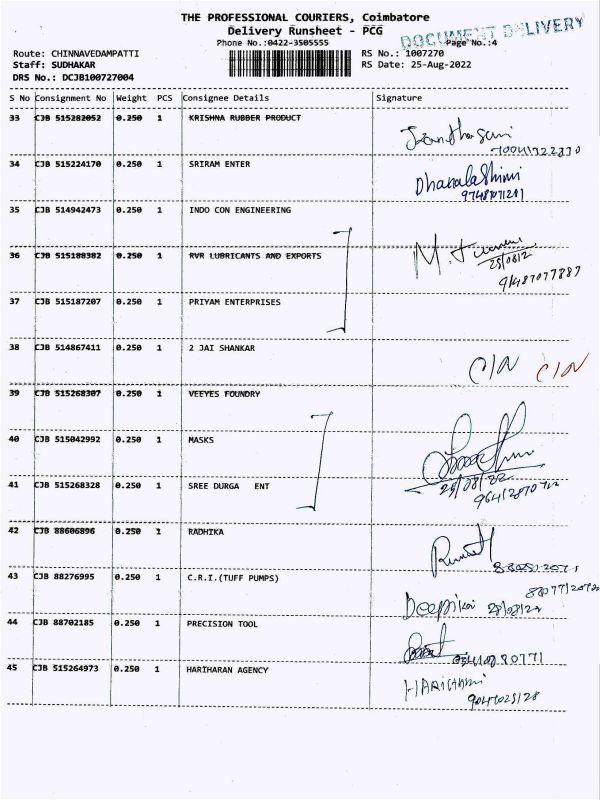 THE PROFESSIONAL COURIERS, Coimbatore
Delivery Runsheet - PCG
Phone No.:0422-3505555
DOCUMENT DELIVERY
Page No.:4
Route: CHINNAVEDAMPATTI RS No.: 1007270
Staff: SUDHAKAR RS Date: 25-Aug-2022
DRS No.: DCJB100727004
S No Consignment No Weight PCS Consignee Details Signature
33 CJB 515282052 0.250 1 KRISHNA RUBBER PRODUCT
34 CJB 515224170 0.250 1 SRIRAM ENTER
35 CJB 514942473 0.250 1 INDO CON ENGINEERING
36 CJB 515188382 0.250 1 RVR LUBRICANTS AND EXPORTS
37 CJB 515187207 0.250 1 PRIYAM ENTERPRISES
38 CJB 514867411 0.250 1 2 JAI SHANKAR
C/N C/N
39 CJB 515268307 0.250 1 VEEYES FOUNDRY
40 CJB 515042992 0.250 1 MASKS
41 CJB 515268328 0.250 1 SREE DURGA ENT
42 CJB 88606896 0.250 1 RADHIKA
43 CJB 88276995 0.250 1 C.R.I.(TUFF PUMPS)
44 CJB 88702185 0.250 1 PRECISION TOOL
45 CJB 515264973 0.250 1 HARIHARAN AGENCY